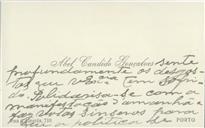 Abel Candido Gonçalves sente
profundamente os desgos-
tos que V. Ex.cia tem sofri-
do. Solidarisa-se com a
manifestação d'amanhã e
faz votos sinceros para
que a politica de
PORTO